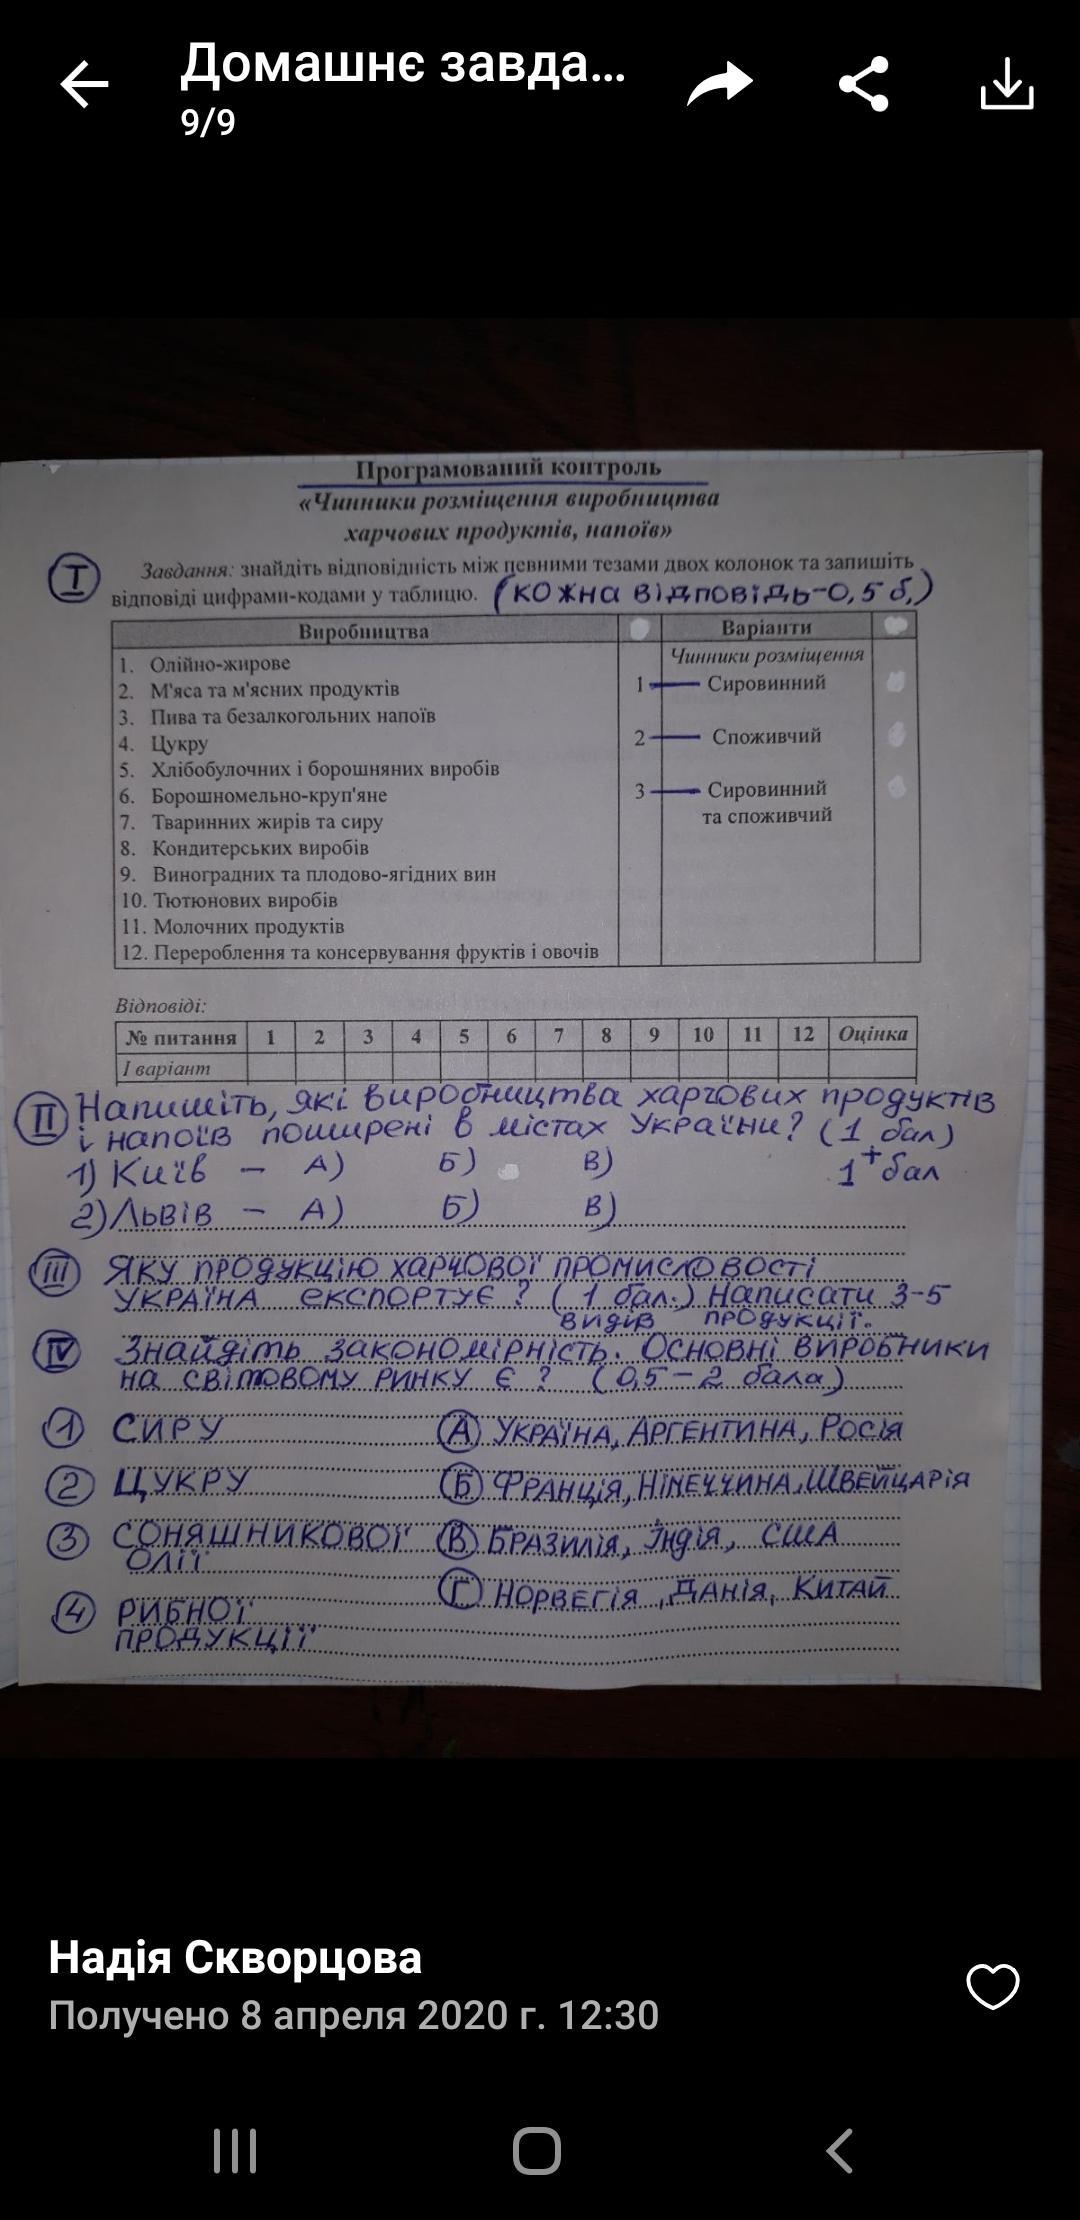 Домашнє завда...
9/9
Програмований контроль
«Чинники розміщення виробництва
харчових продуктів, напоїв»
I Завдання: знайдіть відповідність між певними тезами двох колонок та запишіть
відповіді цифрами-кодами у таблицю. (кожна відповідь-0,5 б.)
Виробництва Варіанти
Чинники розміщення
1. Олійно-жирове
2. М'яса та м'ясних продуктів 1 — Сировинний
3. Пива та безалкогольних напоїв
4. Цукру 2 — Споживчий
5. Хлібобулочних і борошняних виробів
6. Борошномельно-круп'яне 3 — Сировинний
7. Тваринних жирів та сиру та споживчий
8. Кондитерських виробів
9. Виноградних та плодово-ягідних вин
10. Тютюнових виробів
11. Молочних продуктів
12. Перероблення та консервування фруктів і овочів
Відповіді:
№ питання 1 2 3 4 5 6 7 8 9 10 11 12 Оцінка
I варіант
II Напишіть, які виробництва харчових продуктів
і напоїв поширені в містах України? (1 бал)
1) Київ - А) Б) В) 1+бал
2) Львів - А) Б) В)
III Яку продукцію харчової промисловості
Україна експортує? (1 бал.) Написати 3-5
видів продукції.
IV Знайдіть закономірність. Основні виробники
на світовому ринку є? (0,5-2 бала)
1 Сиру А Україна, Аргентина, Росія
2 Цукру Б Франція, Німеччина, Швейцарія
3 Соняшникової В Бразилія, Індія, США
олії
Г Норвегія, Данія, Китай
4 Рибної
продукції
Надія Скворцова
Получено 8 апреля 2020 г. 12:30